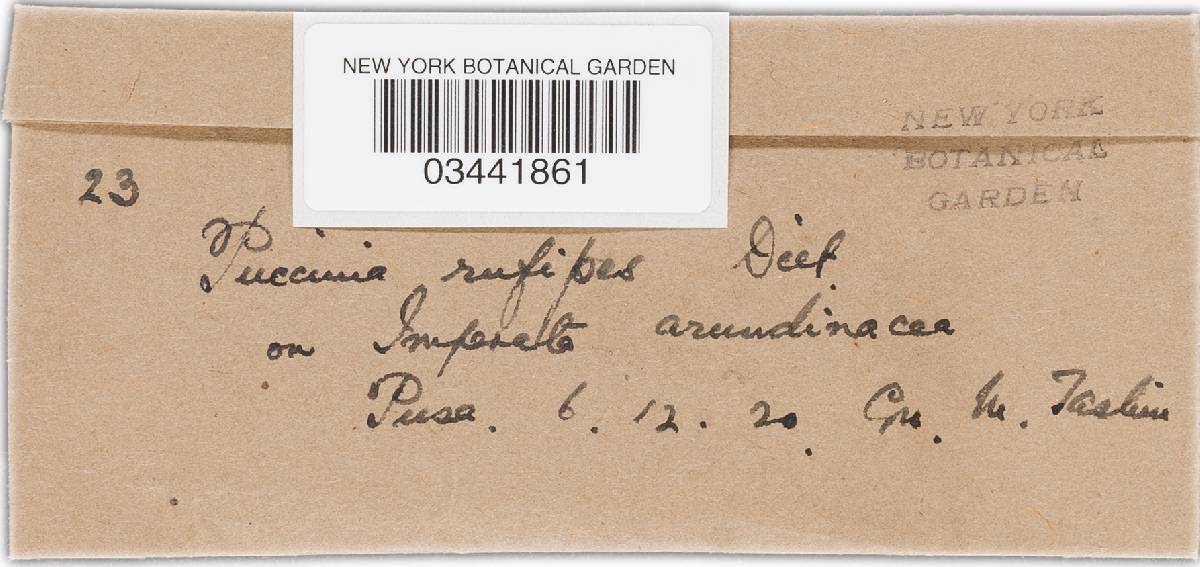 NEW YORK BOTANICAL GARDEN
03441861
NEW YORK
BOTANICAL
GARDEN
23
Puccinia rufipes Diet.
on Imperata arundinacea
Pusa. 6. 12. 20. M. Taslim